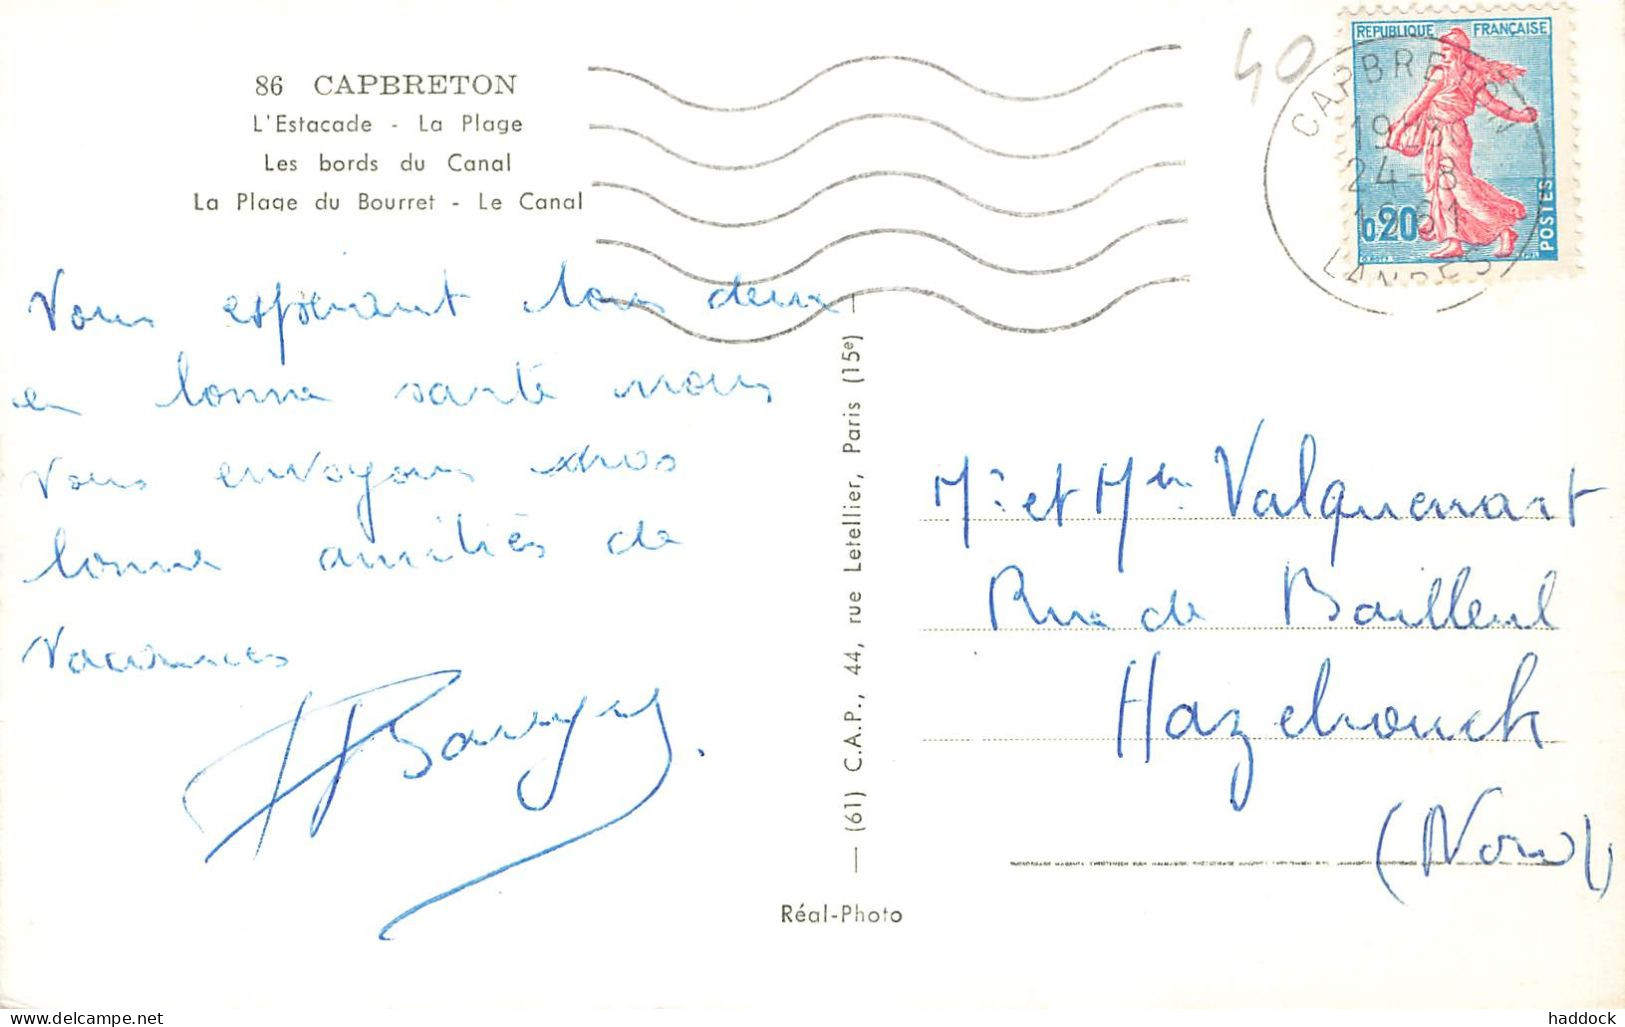 86 CAPBRETON
L'Estacade - La Plage
Les bords du Canal
La Plage du Bourret - Le Canal
40
REPUBLIQUE FRANÇAISE
0,20
POSTES
CAPBRETON
19H30
24-8
1961
LANDES
Vous espérant tous deux
en bonne santé nous
vous envoyons nos
bonne amitiés de
vacances
— (61) C.A.P., 44, rue Letellier, Paris (15e) —
Réal-Photo
Mr et Mme Valquenart
Rue de Bailleul
Hazebrouck
(Nord)
delcampe.net
haddock